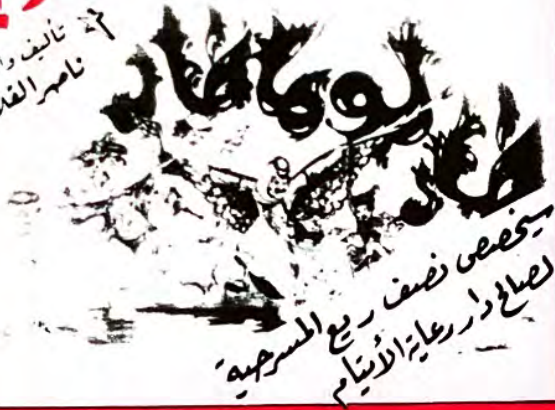 تأليف
ناصر
طار
لوماطار
سيخصص نصف ريع المسرحية
لصالح دار رعاية الأيتام